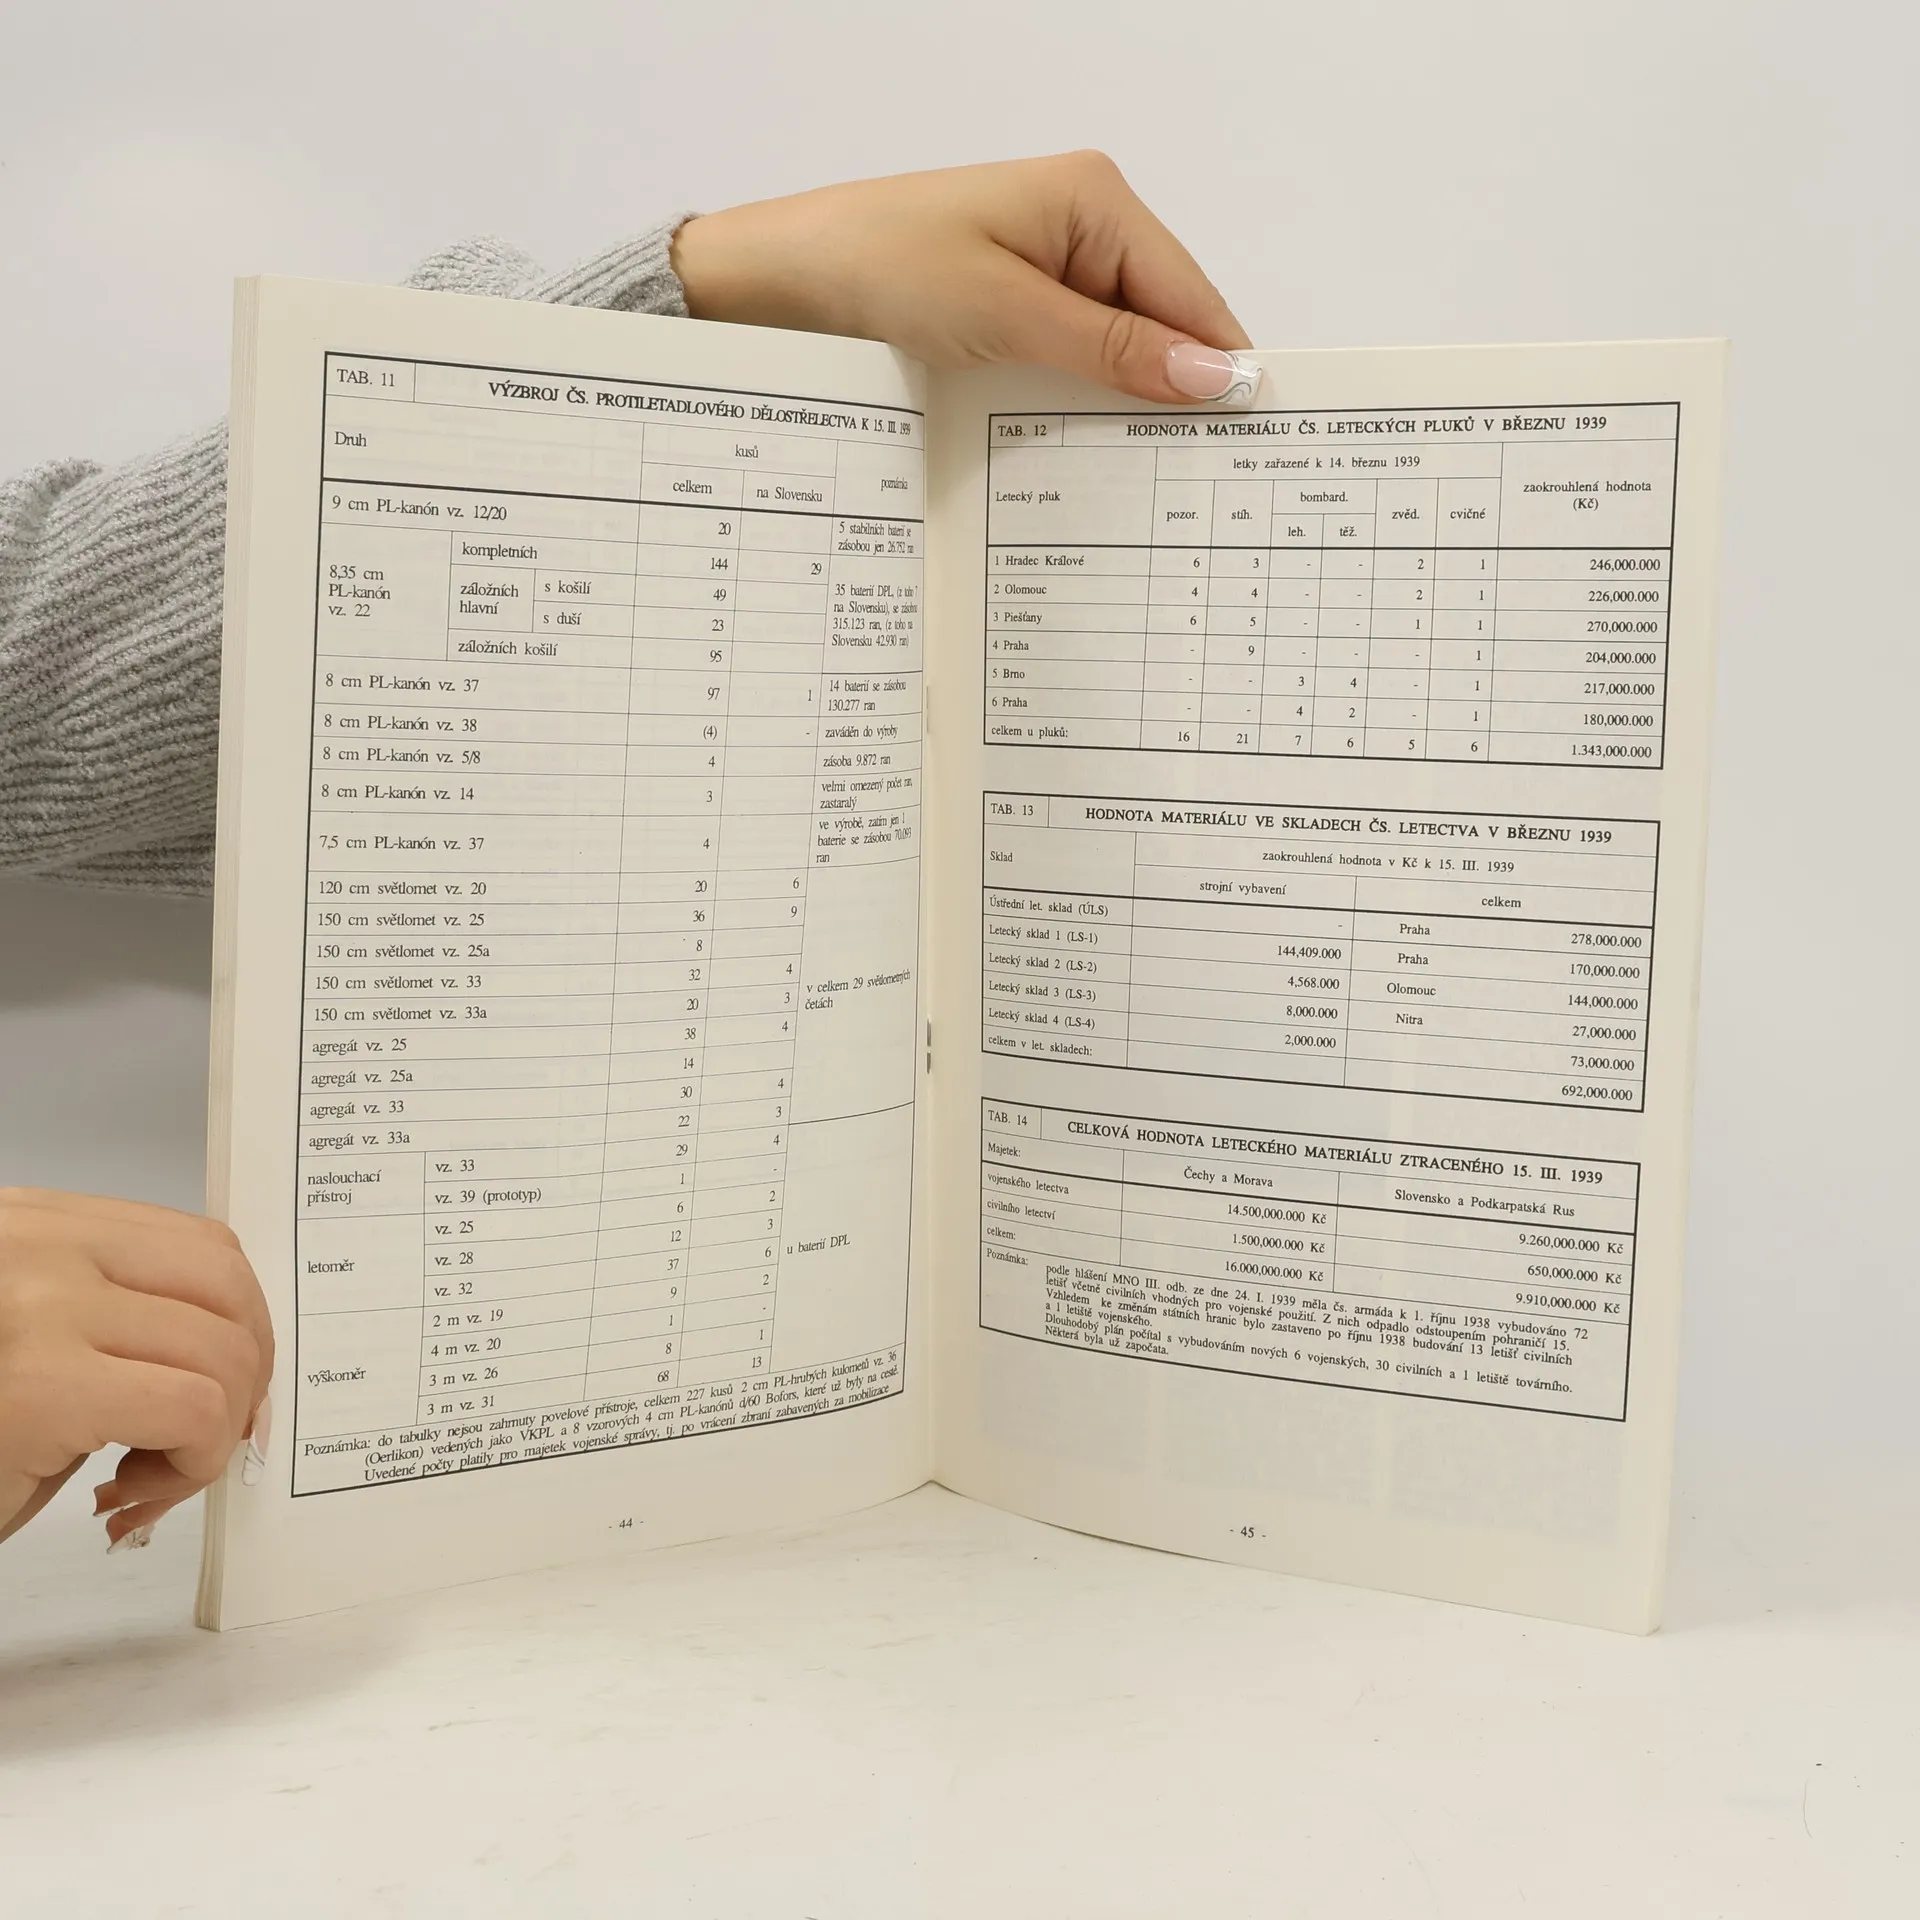 TAB. 11 VÝZBROJ ČS. PROTILETADLOVÉHO DĚLOSTŘELECTVA K 15. III. 1939
Druh kusů poznámka
celkem na Slovensku
9 cm PL-kanón vz. 12/20 20 5 stabilních baterií se zásobou jen 26.752 ran
8,35 cm PL-kanón vz. 22 kompletních 144 29 35 baterií DPL, (z toho 7 na Slovensku), se zásobou 315.123 ran, (z toho na Slovensku 42.930 ran)
záložních hlavní s košilí 49
s duší 23
záložních košilí 95
8 cm PL-kanón vz. 37 97 1 14 baterií se zásobou 130.277 ran
8 cm PL-kanón vz. 38 (4) - zaváděn do výroby
8 cm PL-kanón vz. 5/8 4 zásoba 9.872 ran
8 cm PL-kanón vz. 14 3 velmi omezený počet ran, zastaralý
7,5 cm PL-kanón vz. 37 4 ve výrobě, zatím jen 1 baterie se zásobou 70.093 ran
120 cm světlomet vz. 20 20 6
150 cm světlomet vz. 25 36 9
150 cm světlomet vz. 25a 8
150 cm světlomet vz. 33 32 4 v celkem 29 světlometných četách
150 cm světlomet vz. 33a 20 3
agregát vz. 25 38 4
agregát vz. 25a 14
agregát vz. 33 30 4
agregát vz. 33a 22 3
naslouchací přístroj vz. 33 29 4
vz. 39 (prototyp) 1 -
letoměr vz. 25 6 2
vz. 28 12 3 u baterií DPL
vz. 32 37 6
výškoměr 2 m vz. 19 9 2
4 m vz. 20 1 -
3 m vz. 26 8 1
3 m vz. 31 68 13
Poznámka: do tabulky nejsou zahrnuty povelové přístroje, celkem 227 kusů 2 cm PL-hrubých kulometů vz. 36
(Oerlikon) vedených jako VKPL a 8 vzorových 4 cm PL-kanónů d/60 Bofors, které už byly na cestě.
Uvedené počty platily pro majetek vojenské správy, tj. po vrácení zbraní zabavených za mobilizace
- 44 -
TAB. 12 HODNOTA MATERIÁLU ČS. LETECKÝCH PLUKŮ V BŘEZNU 1939
Letecký pluk letky zařazené k 14. březnu 1939 zaokrouhlená hodnota (Kč)
pozor. stíh. bombard. zvěd. cvičné
leh. těž.
1 Hradec Králové 6 3 - - 2 1 246,000.000
2 Olomouc 4 4 - - 2 1 226,000.000
3 Piešťany 6 5 - - 1 1 270,000.000
4 Praha - 9 - - - 1 204,000.000
5 Brno - - 3 4 - 1 217,000.000
6 Praha - - 4 2 - 1 180,000.000
celkem u pluků: 16 21 7 6 5 6 1.343,000.000
TAB. 13 HODNOTA MATERIÁLU VE SKLADECH ČS. LETECTVA V BŘEZNU 1939
Sklad zaokrouhlená hodnota v Kč k 15. III. 1939
strojní vybavení celkem
Ústřední let. sklad (ÚLS) - Praha 278,000.000
Letecký sklad 1 (LS-1) 144,409.000 Praha 170,000.000
Letecký sklad 2 (LS-2) 4,568.000 Olomouc 144,000.000
Letecký sklad 3 (LS-3) 8,000.000 Nitra 27,000.000
Letecký sklad 4 (LS-4) 2,000.000 73,000.000
celkem v let. skladech: 692,000.000
TAB. 14 CELKOVÁ HODNOTA LETECKÉHO MATERIÁLU ZTRACENÉHO 15. III. 1939
Majetek: Čechy a Morava Slovensko a Podkarpatská Rus
vojenského letectva 14.500,000.000 Kč 9.260,000.000 Kč
civilního letectví 1.500,000.000 Kč 650,000.000 Kč
celkem: 16.000,000.000 Kč 9.910,000.000 Kč
Poznámka: podle hlášení MNO III. odb. ze dne 24. I. 1939 měla čs. armáda k 1. říjnu 1938 vybudováno 72
letišť včetně civilních vhodných pro vojenské použití. Z nich odpadlo odstoupením pohraničí 15.
Vzhledem ke změnám státních hranic bylo zastaveno po říjnu 1938 budování 13 letišť civilních
a 1 letiště vojenského.
Dlouhodobý plán počítal s vybudováním nových 6 vojenských, 30 civilních a 1 letiště továrního.
Některá byla už započata.
- 45 -